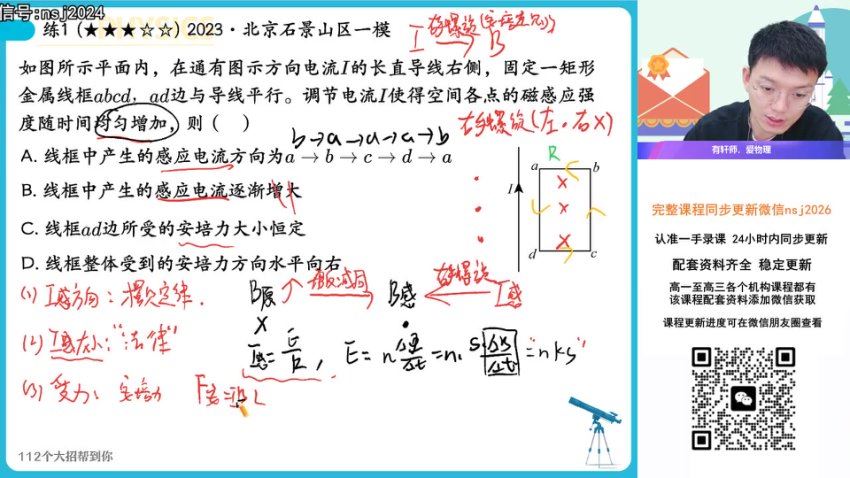 信号:nsj2024
练1 (★★★☆☆) 2023·北京石景山区一模
如图所示平面内，在通有图示方向电流I的长直导线右侧，固定一矩形
金属线框abcd，ad边与导线平行。调节电流I使得空间各点的磁感应强
度随时间均匀增加，则（ ）
b→a→d→c→b
右手螺旋(左·右×)
A. 线框中产生的感应电流方向为a→b→c→d→a
B. 线框中产生的感应电流逐渐增大
C. 线框ad边所受的安培力大小恒定
D. 线框整体受到的安培力方向水平向右
R
a
b
I
d
c
(1) I感方向: 楞次定律.
B原
增反减同
B感
I感
(2) I感大小: "法律"
I感=E/R, E=nΔΦ/Δt=n·SΔB/Δt="nks"
(3) 受力: 安培力 F安=BIL
112个大招帮到你
有轩师，爱物理
完整课程同步更新微信nsj2026
认准一手录课 24小时内同步更新
配套资料齐全 稳定更新
高一至高三各个机构课程都有
该课程配套资料添加微信获取
课程更新进度可在微信朋友圈查看